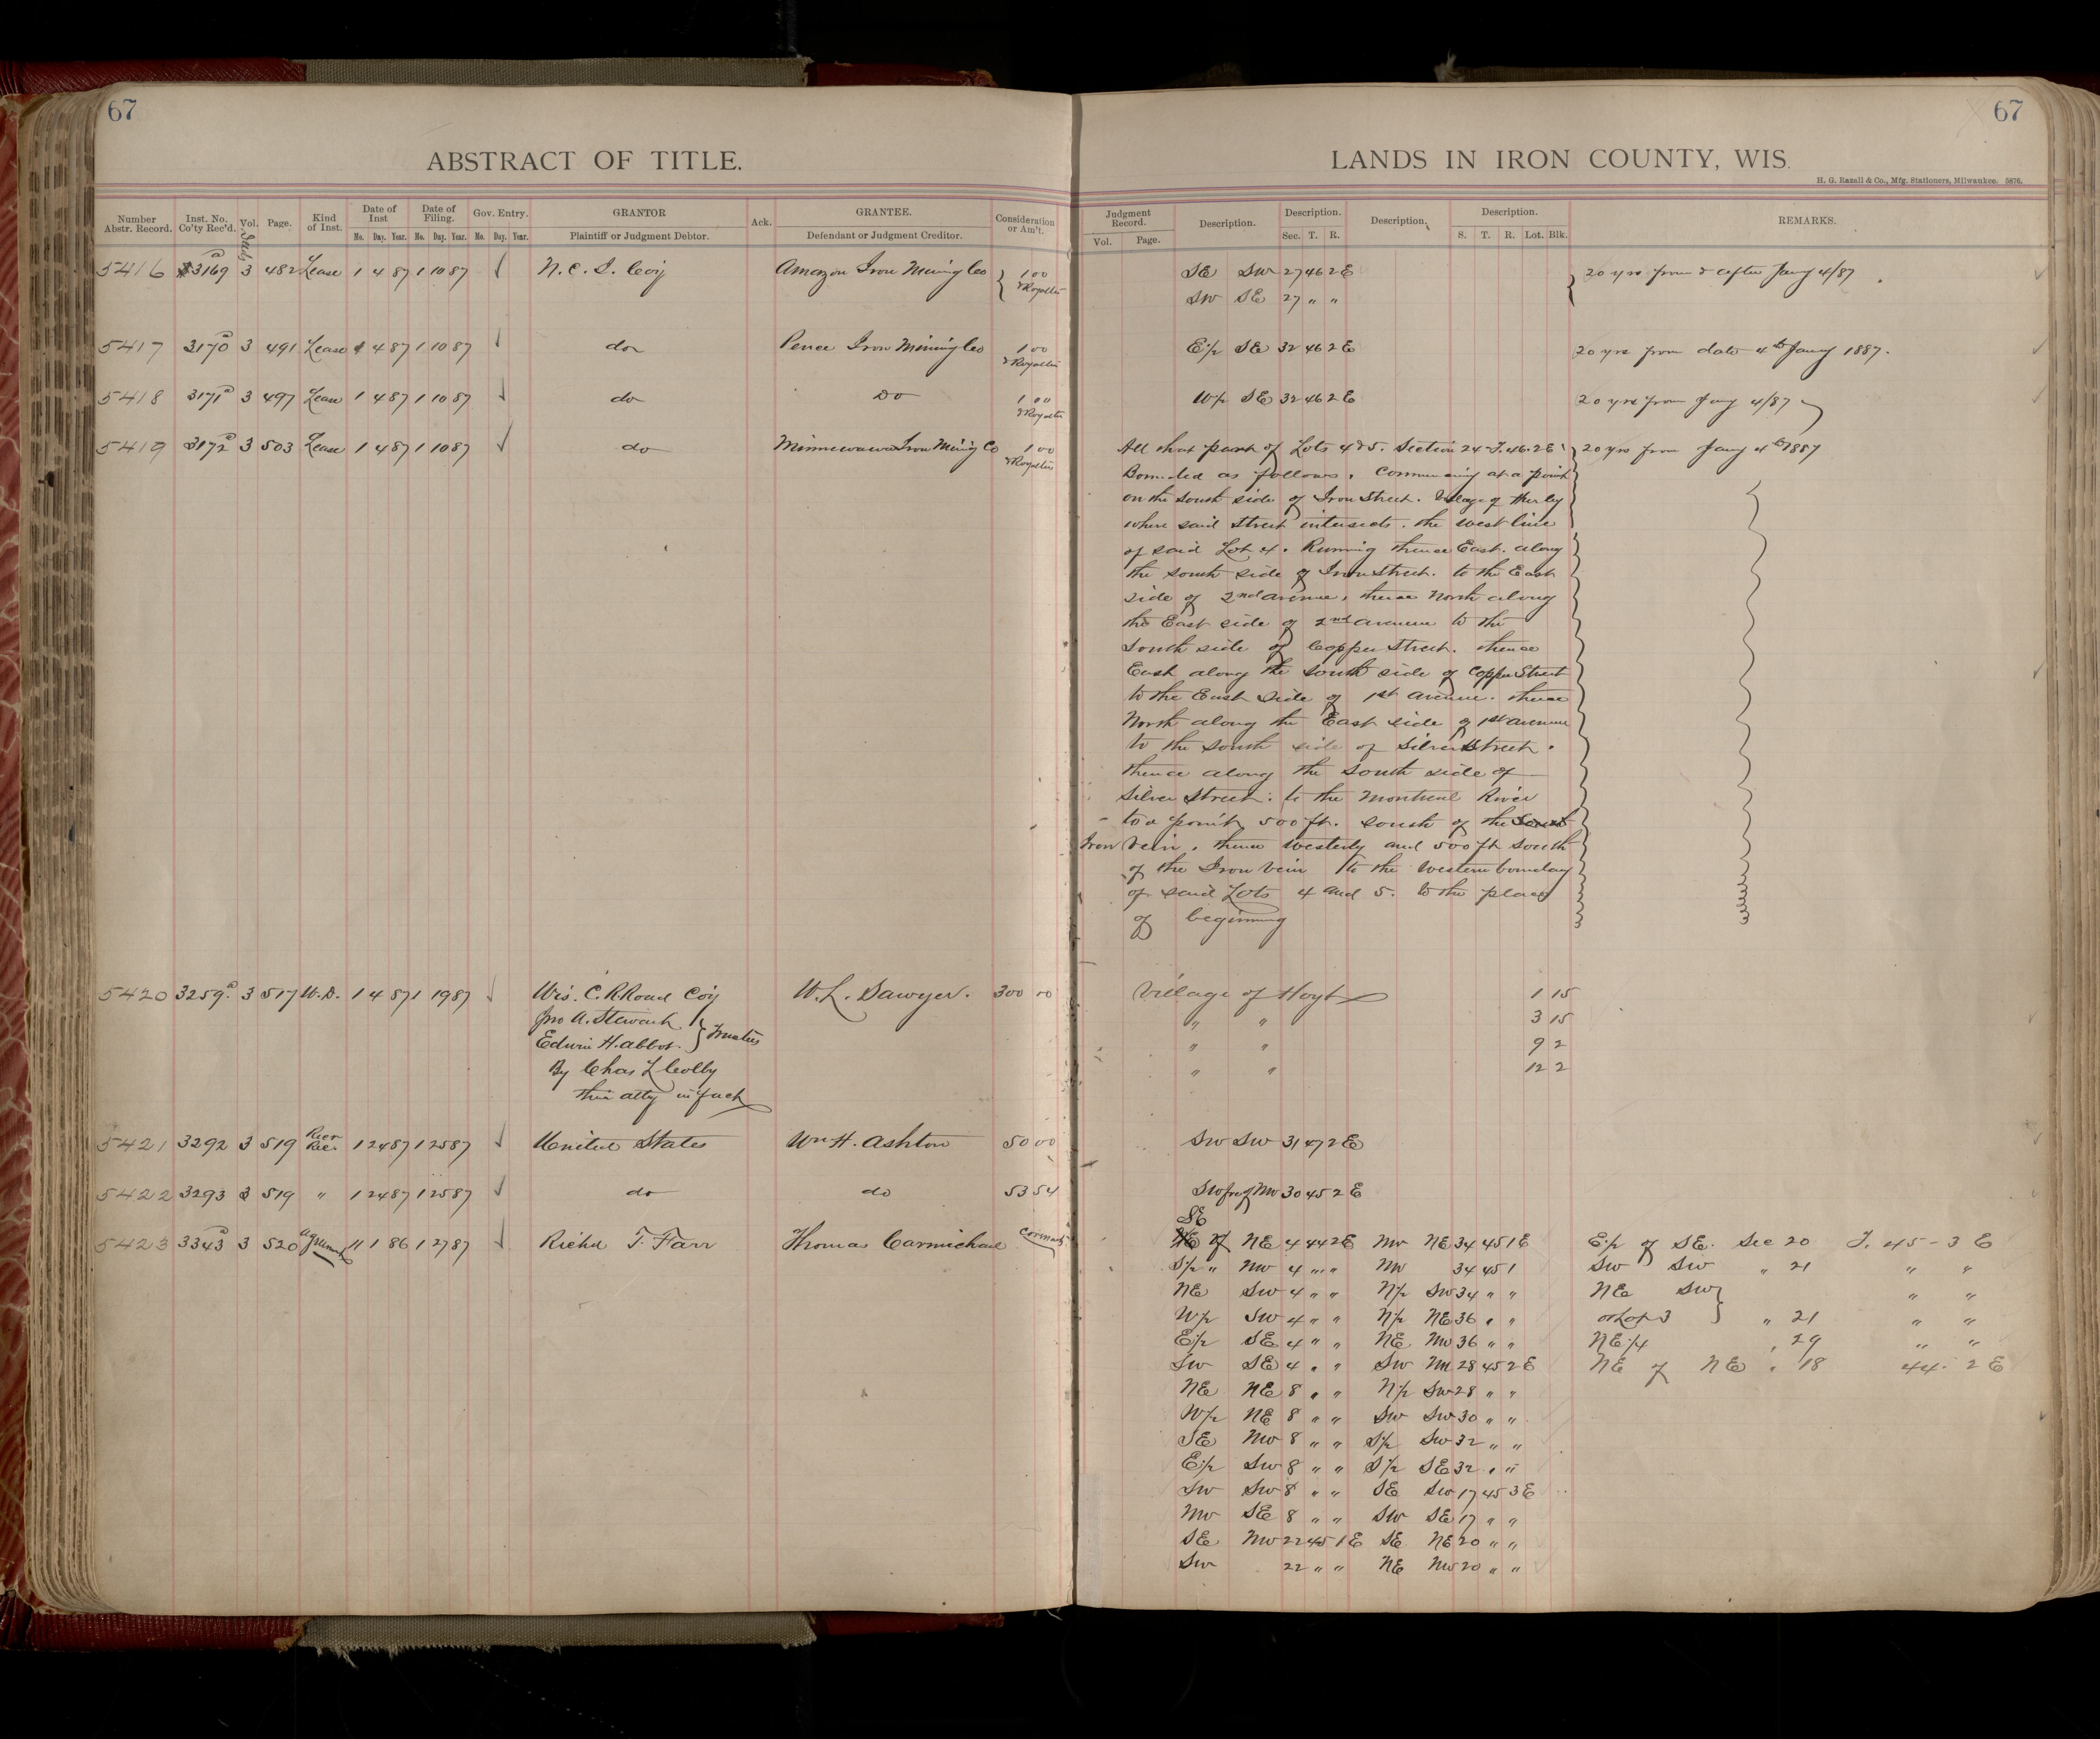 67
67
ABSTRACT OF TITLE.
LANDS IN IRON COUNTY, WIS.
H. G. Razall & Co., Mfg. Stationers, Milwaukee. 5876.
Number Abstr. Record. Inst. No. Co'ty Rec'd. Vol. Page. Kind of Inst. Date of Inst Mo. Day. Year. Date of Filing. Mo. Day. Year. Gov. Entry. Mo. Day. Year. GRANTOR Plaintiff or Judgment Debtor. Ack. GRANTEE. Defendant or Judgment Creditor. Consideration or Am't.
Judgment Record. Vol. Page. Description. Description. Sec. T. R. Description. Description. S. T. R. Lot. Blk. REMARKS.
5416 3169 3 482 Lease 1 4 87 1 10 87 N. C. I. Coy Amazon Iron Mining Co 1 00 & Royalties SE SW 27 46 2E 20 yrs from & after Jany 4/87
SW SE 27 " "
5417 3170 3 491 Lease 1 4 87 1 10 87 do Pence Iron Mining Co 1 00 & Royalties E½ SE 32 46 2E 20 yrs from date 4th Jany 1887.
5418 3171 3 497 Lease 1 4 87 1 10 87 do Do 1 00 & Royalties W½ SE 32 46 2E 20 yrs from Jany 4/87
5419 3172 3 503 Lease 1 4 87 1 10 87 do Minnewawa Iron Mining Co 1 00 & Royalties All that part of Lots 4 & 5. Section 24-T.46.2E 20 yrs from Jany 4th 1887
Bounded as follows. Commencing at a point
on the south side of Iron Street. Village of Hurley
where said street intersects. the west line
of said Lot 4. Running thence East. along
the south side of Iron Street. to the East
side of 2nd avenue, thence North along
the East side of 2nd avenue to the
South side of Copper Street. thence
East along the south side of Copper Street
to the East side of 1st avenue. thence
North along the East side of 1st avenue
to the south side of Silver Street.
thence along the south side of
Silver Street. to the Montreal River
to a point 500 ft. south of the
Iron Vein. thence westerly and 500 ft south
of the Iron Vein to the western bounday
of said Lots 4 and 5. to the place
of beginning
5420 3259 3 517 W.D. 1 4 87 1 19 87 Wis. C. R. Road Coy W. L. Sawyer. 300 00 Village of Hoyt 1 15
Jno A. Stewart " " 3 15
Edwin H. Abbot. } Trustees " " 9 2
By Chas L Colby " " 12 2
their atty in fact
5421 3292 3 519 Recr Rec 1 24 87 1 25 87 United States Wm H. Ashton 50 00 SW SW 31 47 2E
5422 3293 3 519 " 1 24 87 1 25 87 do do 53 54 SW fr of NW 30 45 2E
5423 3343 3 520 Agreement 11 1 86 1 27 87 Richd T. Farr Thomas Carmichael SE of NE 4 44 2E NW NE 34 45 1E E½ of SE. Sec 20 T. 45 - 3 E
S½ " NW 4 " " NW 34 45 1 SW SW " 21 " "
NE SW 4 " " N½ SW 34 " " NE SW } " "
W½ SW 4 " " N½ NE 36 " " or Lot 3 " 21 " "
E½ SE 4 " " NE NW 36 " " NE¼ " 29 " "
SW SE 4 " " SW NW 28 45 2E NE of NE " 18 44. 2 E
NE NE 8 " " N½ SW 28 " "
W½ NE 8 " " SW SW 30 " "
SE NW 8 " " S½ SW 32 " "
E½ SW 8 " " S½ SE 32 " "
SW SW 8 " " SE SW 17 45 3E
NW SE 8 " " SW SE 17 " "
SE NW 22 45 1E SE NE 20 " "
SW 22 " " NE NW 20 " "